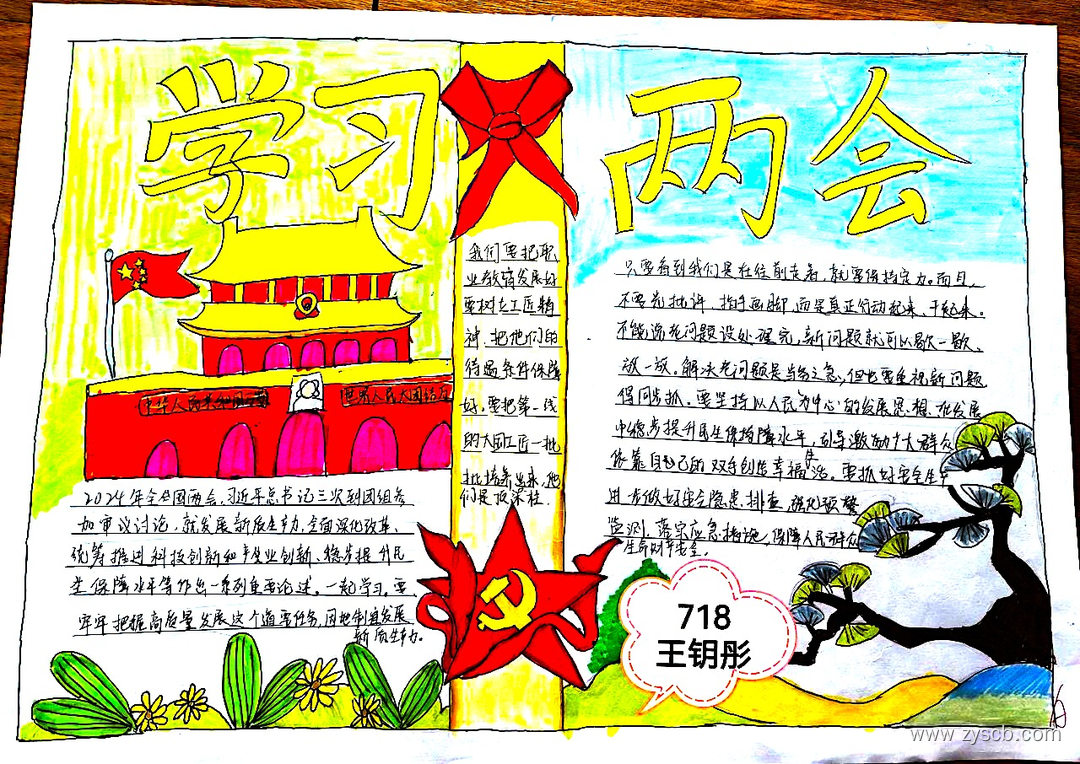 学习两会
中华人民共和国万岁
世界人民大团结万
2024年全国两会,习近平总书记三次到团组参
加审议讨论,就发展新质生产力、全面深化改革、
统筹推进科技创新和产业创新、稳步提升民
生保障水平等作出一系列重要论述。一起学习。要
牢牢把握高质量发展这个首要任务,因地制宜发展
新质生产力。
我们要把职
业教育发展好
要树立工匠精
神,把他们的
待遇条件保障
好。要把第一线
的大国工匠一批
批培养出来,他
们是顶梁柱。
只要看到我们是在往前走着,就要保持定力。而且,
不要光批评、指手画脚,而是真正行动起来、干起来。
不能说老问题没处理完,新问题就可以歇一歇、
放一放。解决老问题是当务之急,但也要重视新问题
得同步抓。要坚持以人民为中心的发展思想,在发展
中稳步提升民生保障水平,引导激励广大群众
依靠自己的双手创造幸福生活。要抓好安全生产
进一步做好安全隐患排查,强化预警
监测,落实应急措施,保障人民群众
生命财产安全。
718
王钥彤
www.zyscb.com